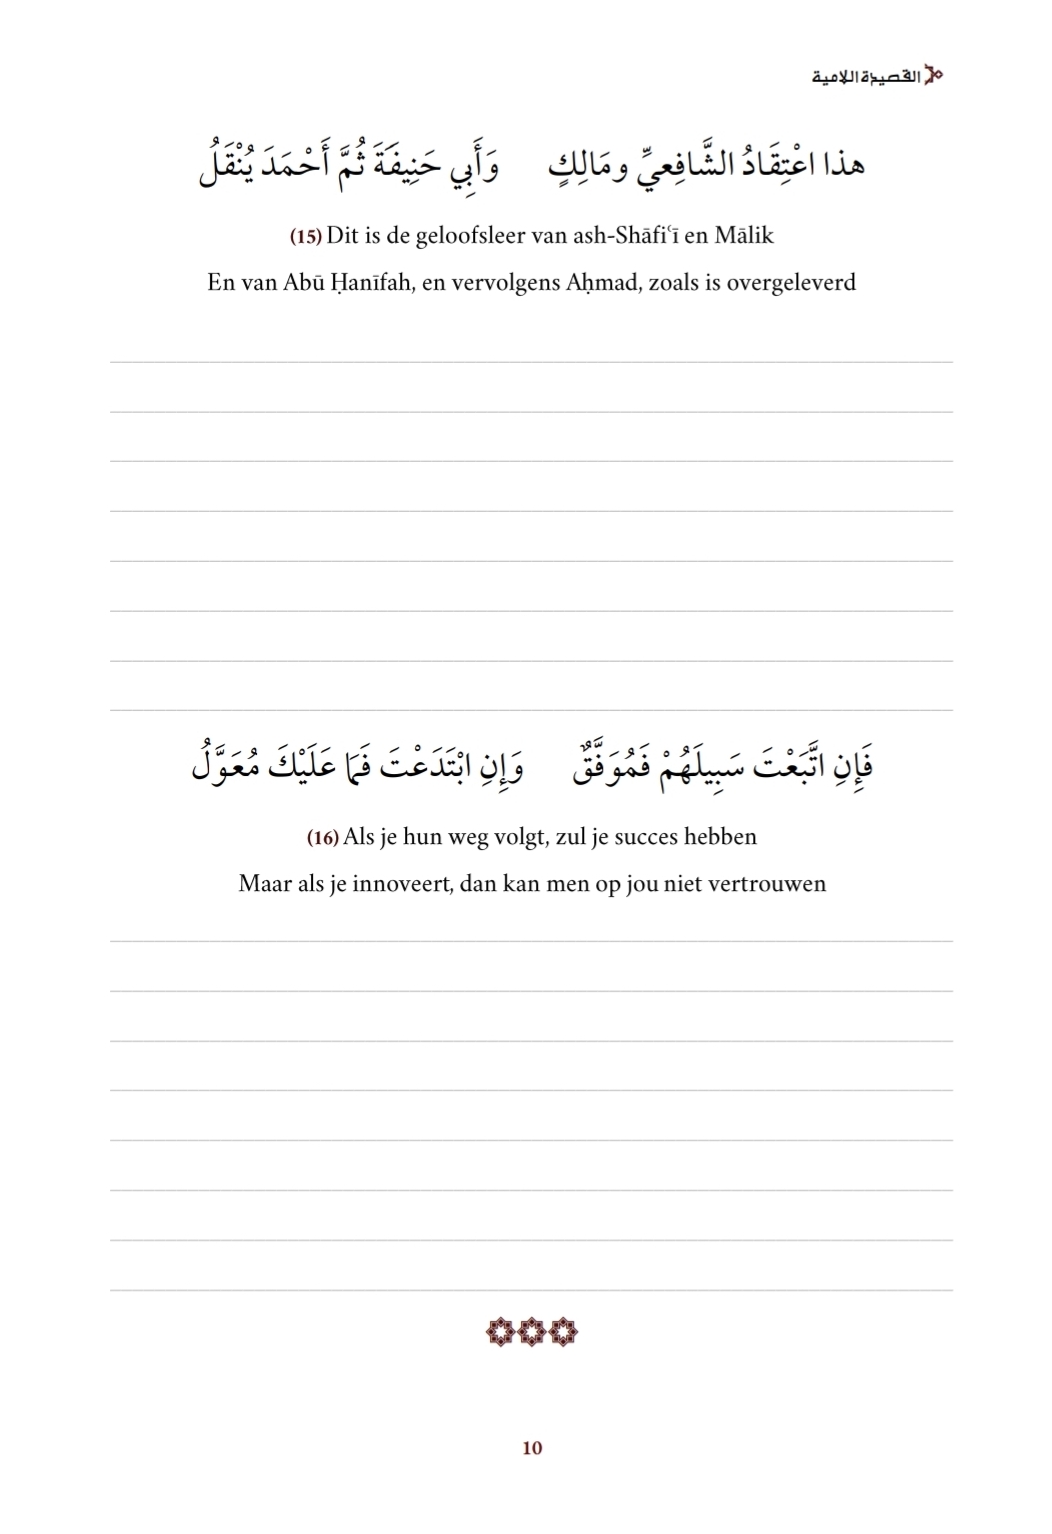 القصيدة اللامية
هذا اعْتِقَادُ الشَّافِعيِّ ومَالِكٍ وَأَبِي حَنِيفَةَ ثُمَّ أَحْمَدَ يُنْقَلُ
(15) Dit is de geloofsleer van ash-Shāfiʿī en Mālik
En van Abū Ḥanīfah, en vervolgens Aḥmad, zoals is overgeleverd
فَإِنِ اتَّبَعْتَ سَبِيلَهُمْ فَمُوَفَّقٌ وَإِنِ ابْتَدَعْتَ فَمَا عَلَيْكَ مُعَوَّلُ
(16) Als je hun weg volgt, zul je succes hebben
Maar als je innoveert, dan kan men op jou niet vertrouwen
10